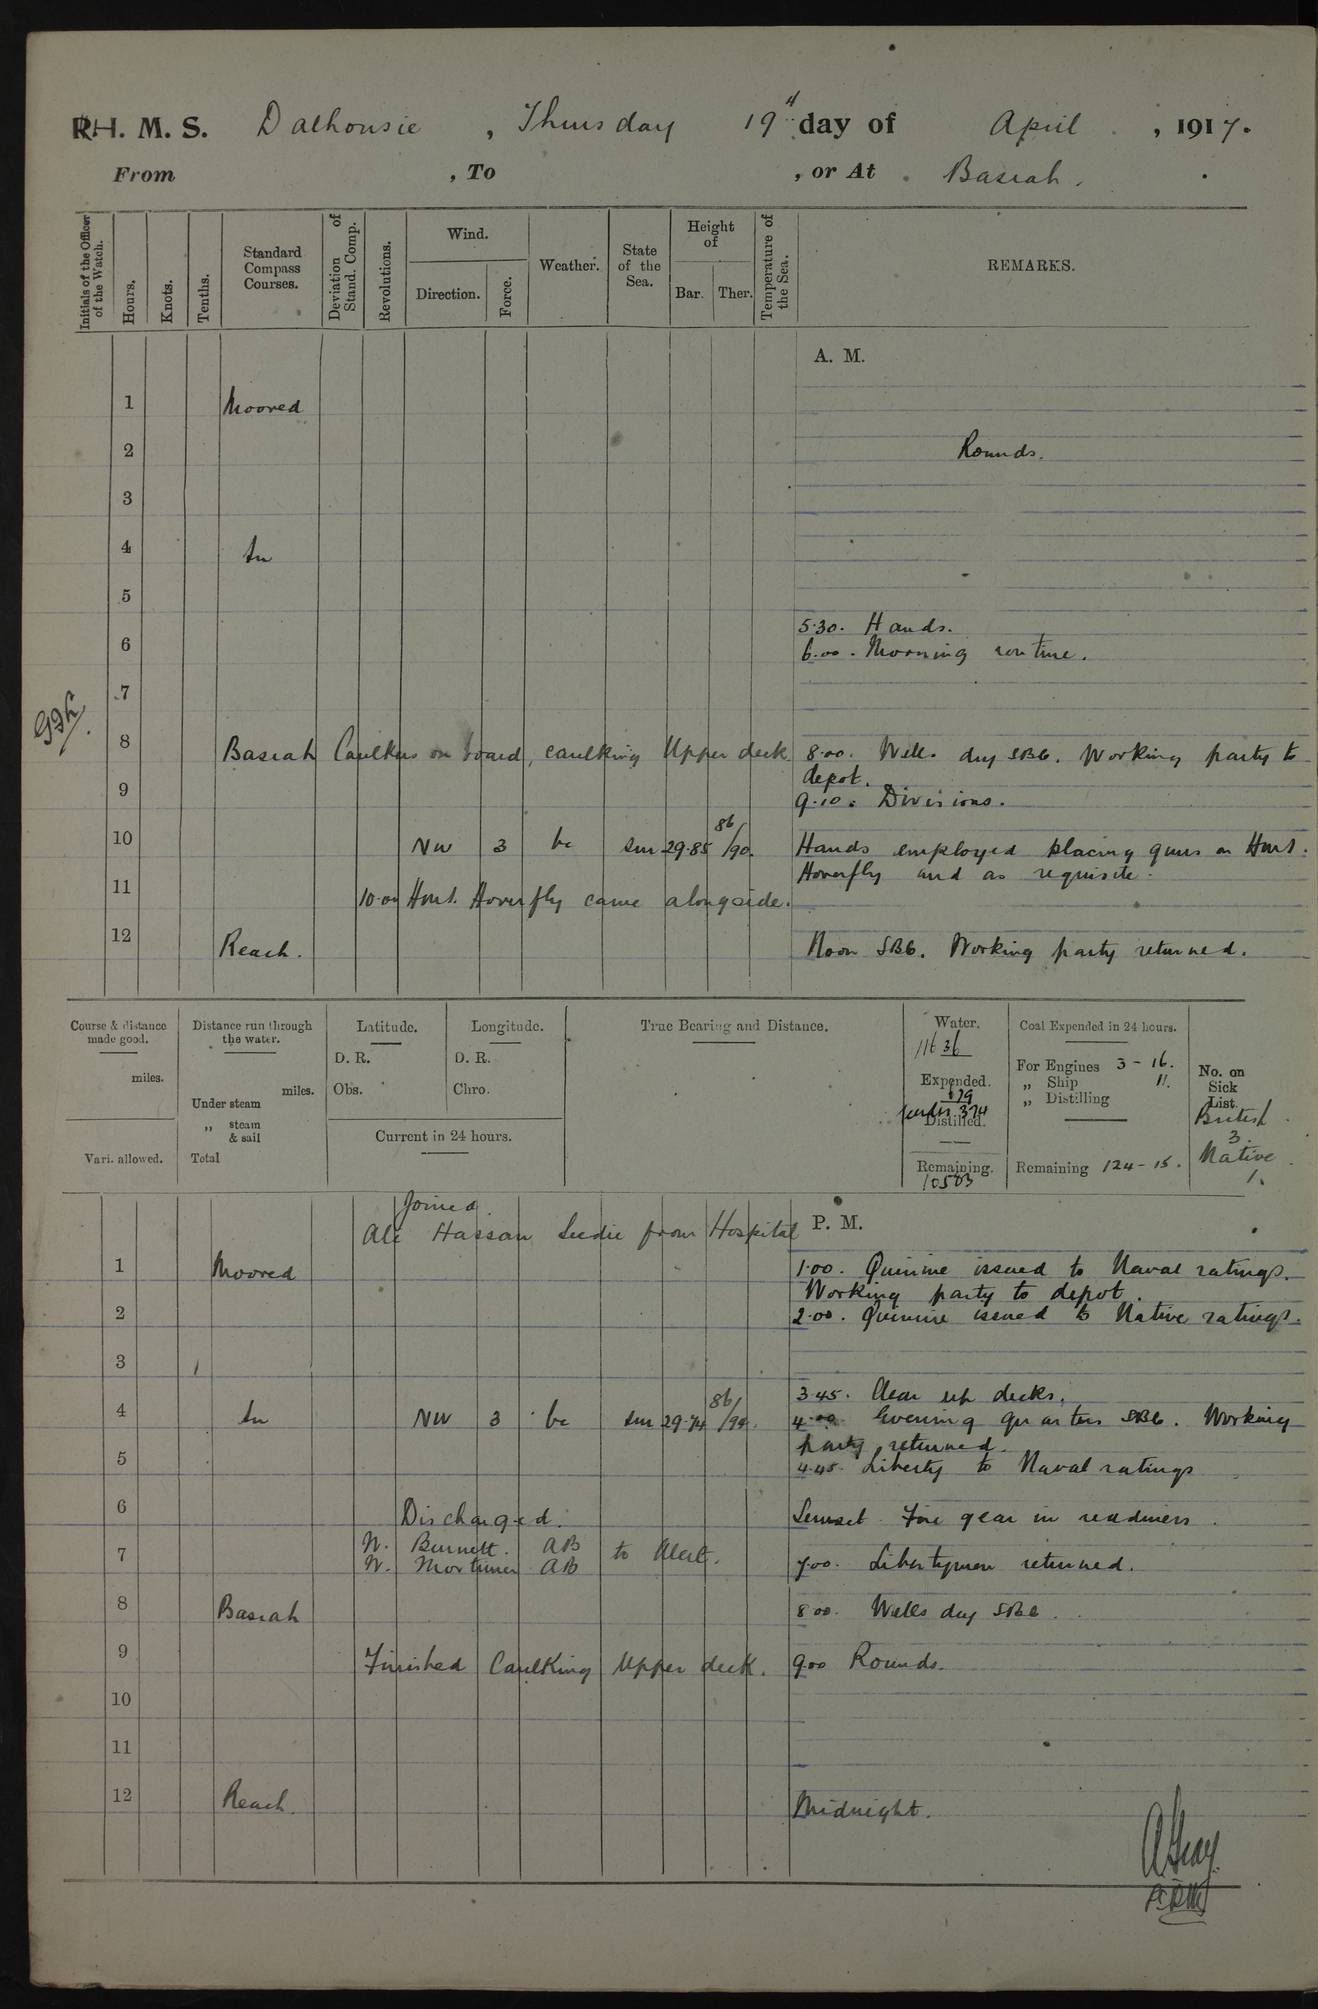 R.H. M. S. Dalhousie, Thursday 19th day of April, 1917.
From , To , or At Basrah.
Initials of the Officer of the Watch.
Hours.
Knots.
Tenths.
Standard Compass Courses.
Deviation of Stand. Comp.
Revolutions.
Wind.
Direction.
Force.
Weather.
State of the Sea.
Height of
Bar.
Ther.
Temperature of the Sea.
REMARKS.
A. M.
1 Moored
2 Rounds.
3
4 In
5
5.30. Hands.
6
6.00. Morning routine.
7
8 Basrah Caulkers on board, caulking Upper deck. 8.00. Wells dry SB6. Working party to
depot.
9
9.10. Divisions.
10 NW 3 bc Sm 29.85 86/90. Hands employed placing guns on HMS.
Hoverfly and as requisite.
11 10.00 HMS. Hoverfly came alongside.
12 Reach. Noon SB6. Working party returned.
Course & distance made good.
miles.
Vari. allowed.
Distance run through the water.
miles.
Under steam
„ steam & sail
Total
Latitude.
D. R.
Obs.
Longitude.
D. R.
Chro.
Current in 24 hours.
True Bearing and Distance.
Water.
11636
Expended.
Distilled.
Remaining.
10583
Coal Expended in 24 hours.
For Engines 3 - 16.
„ Ship 11.
„ Distilling
Remaining 124 - 15.
No. on Sick List.
British
3.
Native
1.
P. M.
Joined
Ali Hassan Seedie from Hospital
1 Moored 1.00. Quinine issued to Naval ratings.
Working party to depot.
2 2.00. Quinine issued to Native ratings.
3
3.45. Clear up decks.
4 In NW 3 bc Sm 29.74 4.00. Evening quarters SB6. Working
party returned.
5
4.45. Liberty to Naval ratings
6 Discharged. Sunset Fire gear in readiness.
W. Burnett. AB
7 to Alert. 7.00. Libertymen returned.
W. Mortimer AB
8 Basrah 8.00. Wells dry SB6.
9 Finished Caulking Upper deck. 9.00 Rounds.
10
11
12 Reach. Midnight.
AGray